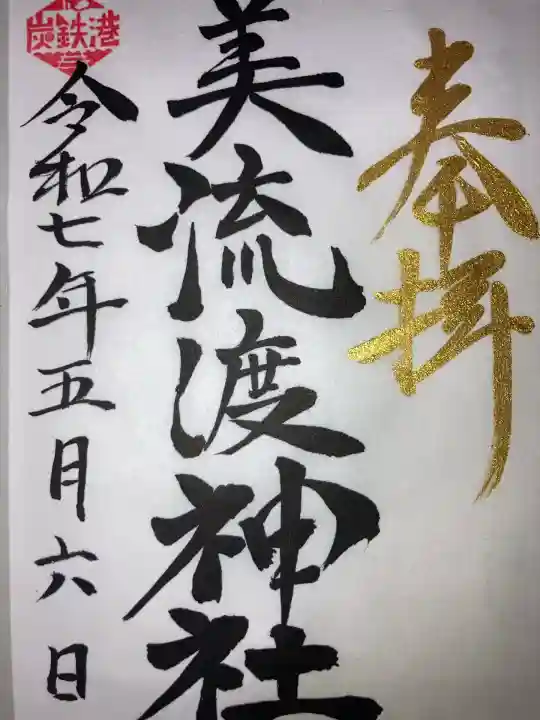 奉拝
美流渡神社
令和七年五月六日
炭鉄港